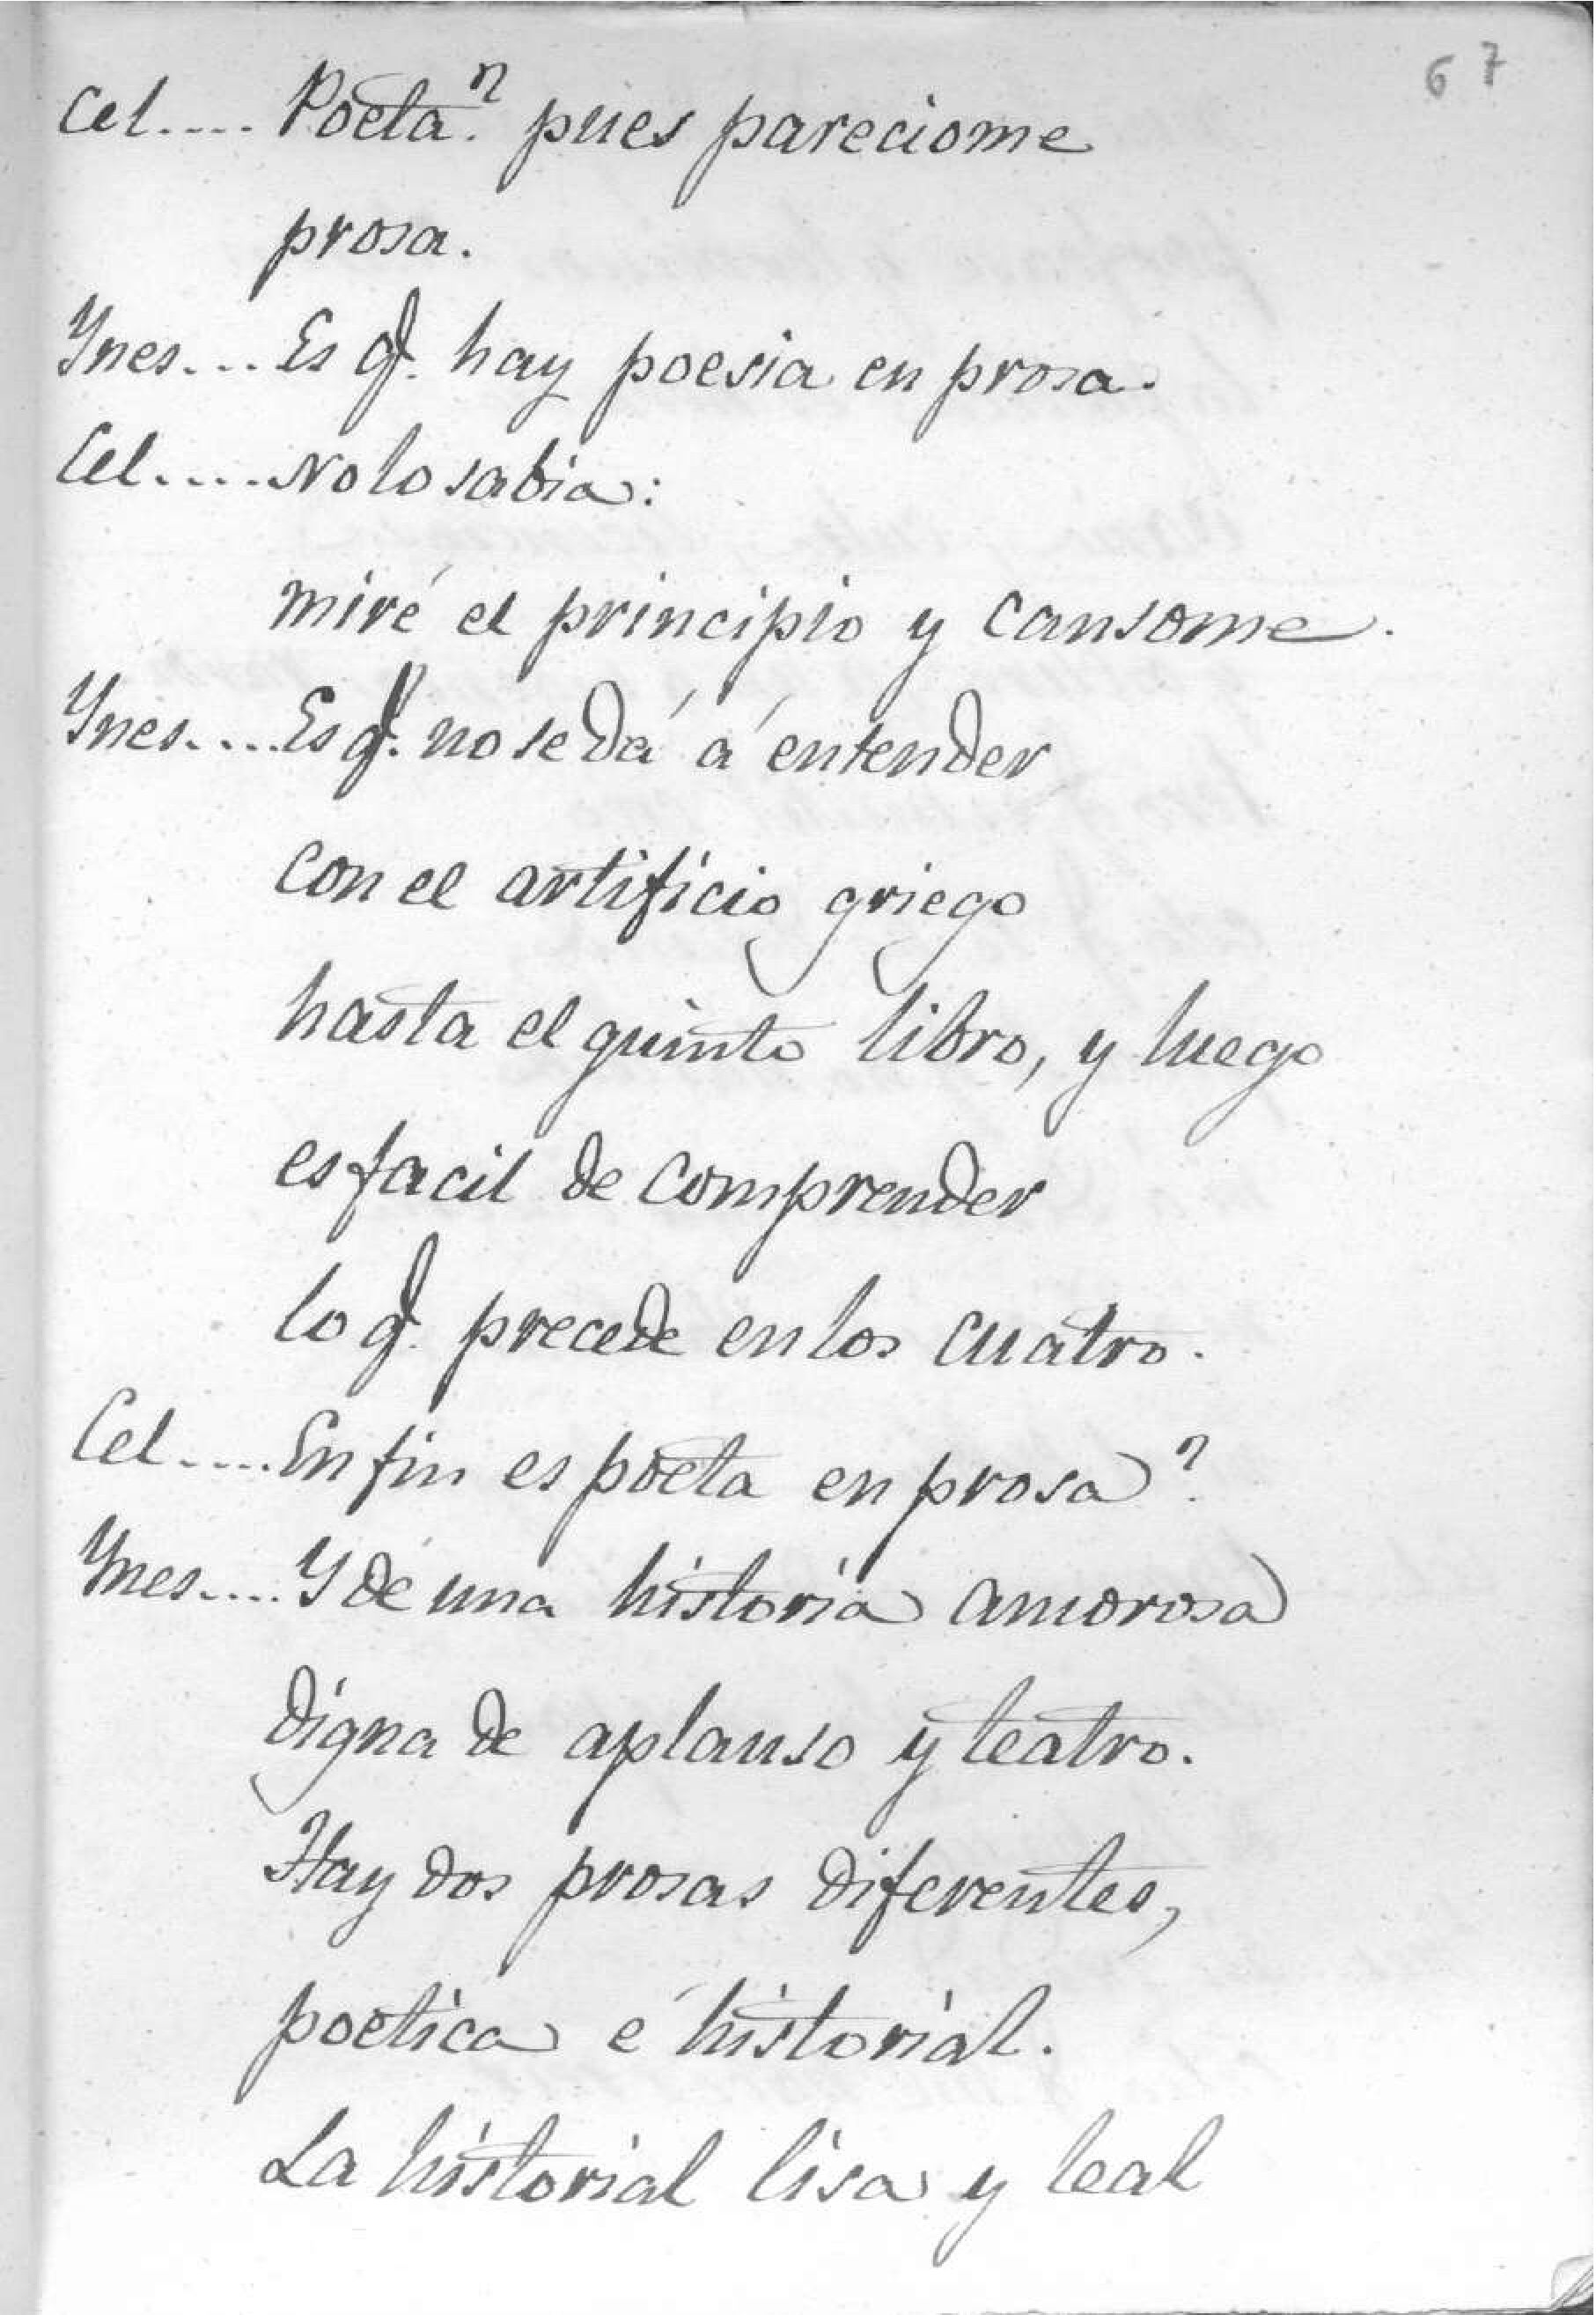 67
Cel.... Poeta? pues pareciome
prosa.
Ynes... Es q. hay poesia en prosa.
Cel.... No lo sabia:
miré el principio y cansome.
Ynes.... Es q. no se dá á entender
con el artificio griego
hasta el quinto libro, y luego
es facil de comprender
lo q. precede en los cuatro.
Cel.... En fin es poeta en prosa?
Ynes.... Y de una historia amorosa
digna de aplauso y teatro.
Hay dos prosas diferentes,
poetica é historial.
La historial lisa y leal